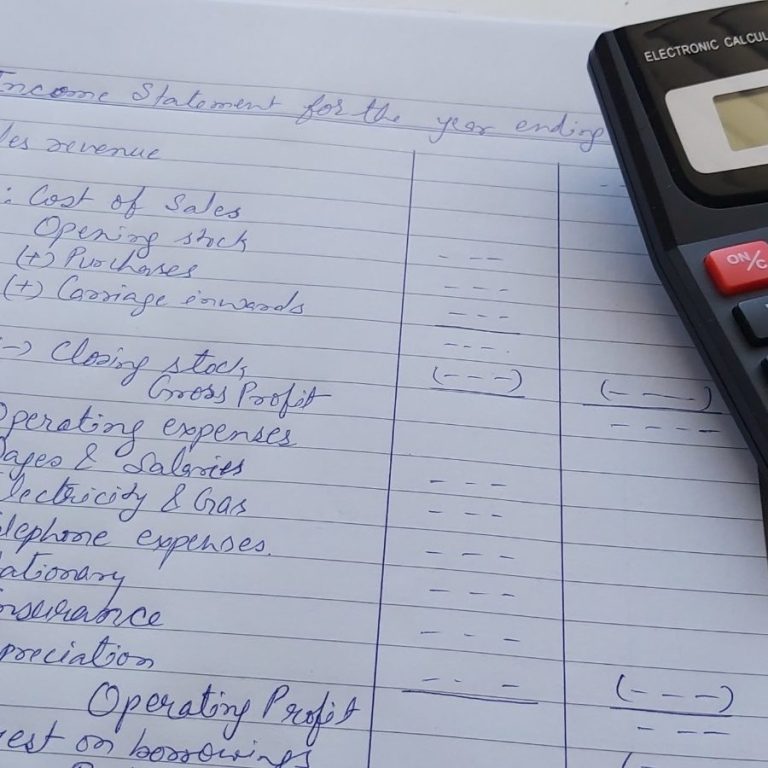 Income Statement for the year ending
les revenue
: Cost of Sales
Opening stock
(+) Purchases
(+) Carriage inwards
(-) Closing stock
Gross Profit
Operating expenses
Wages & Salaries
Electricity & Gas
elephone expenses.
ationary
nsurance
preciation
Operating Profit
rest on borrowings
ELECTRONIC CALCUL
ON/C